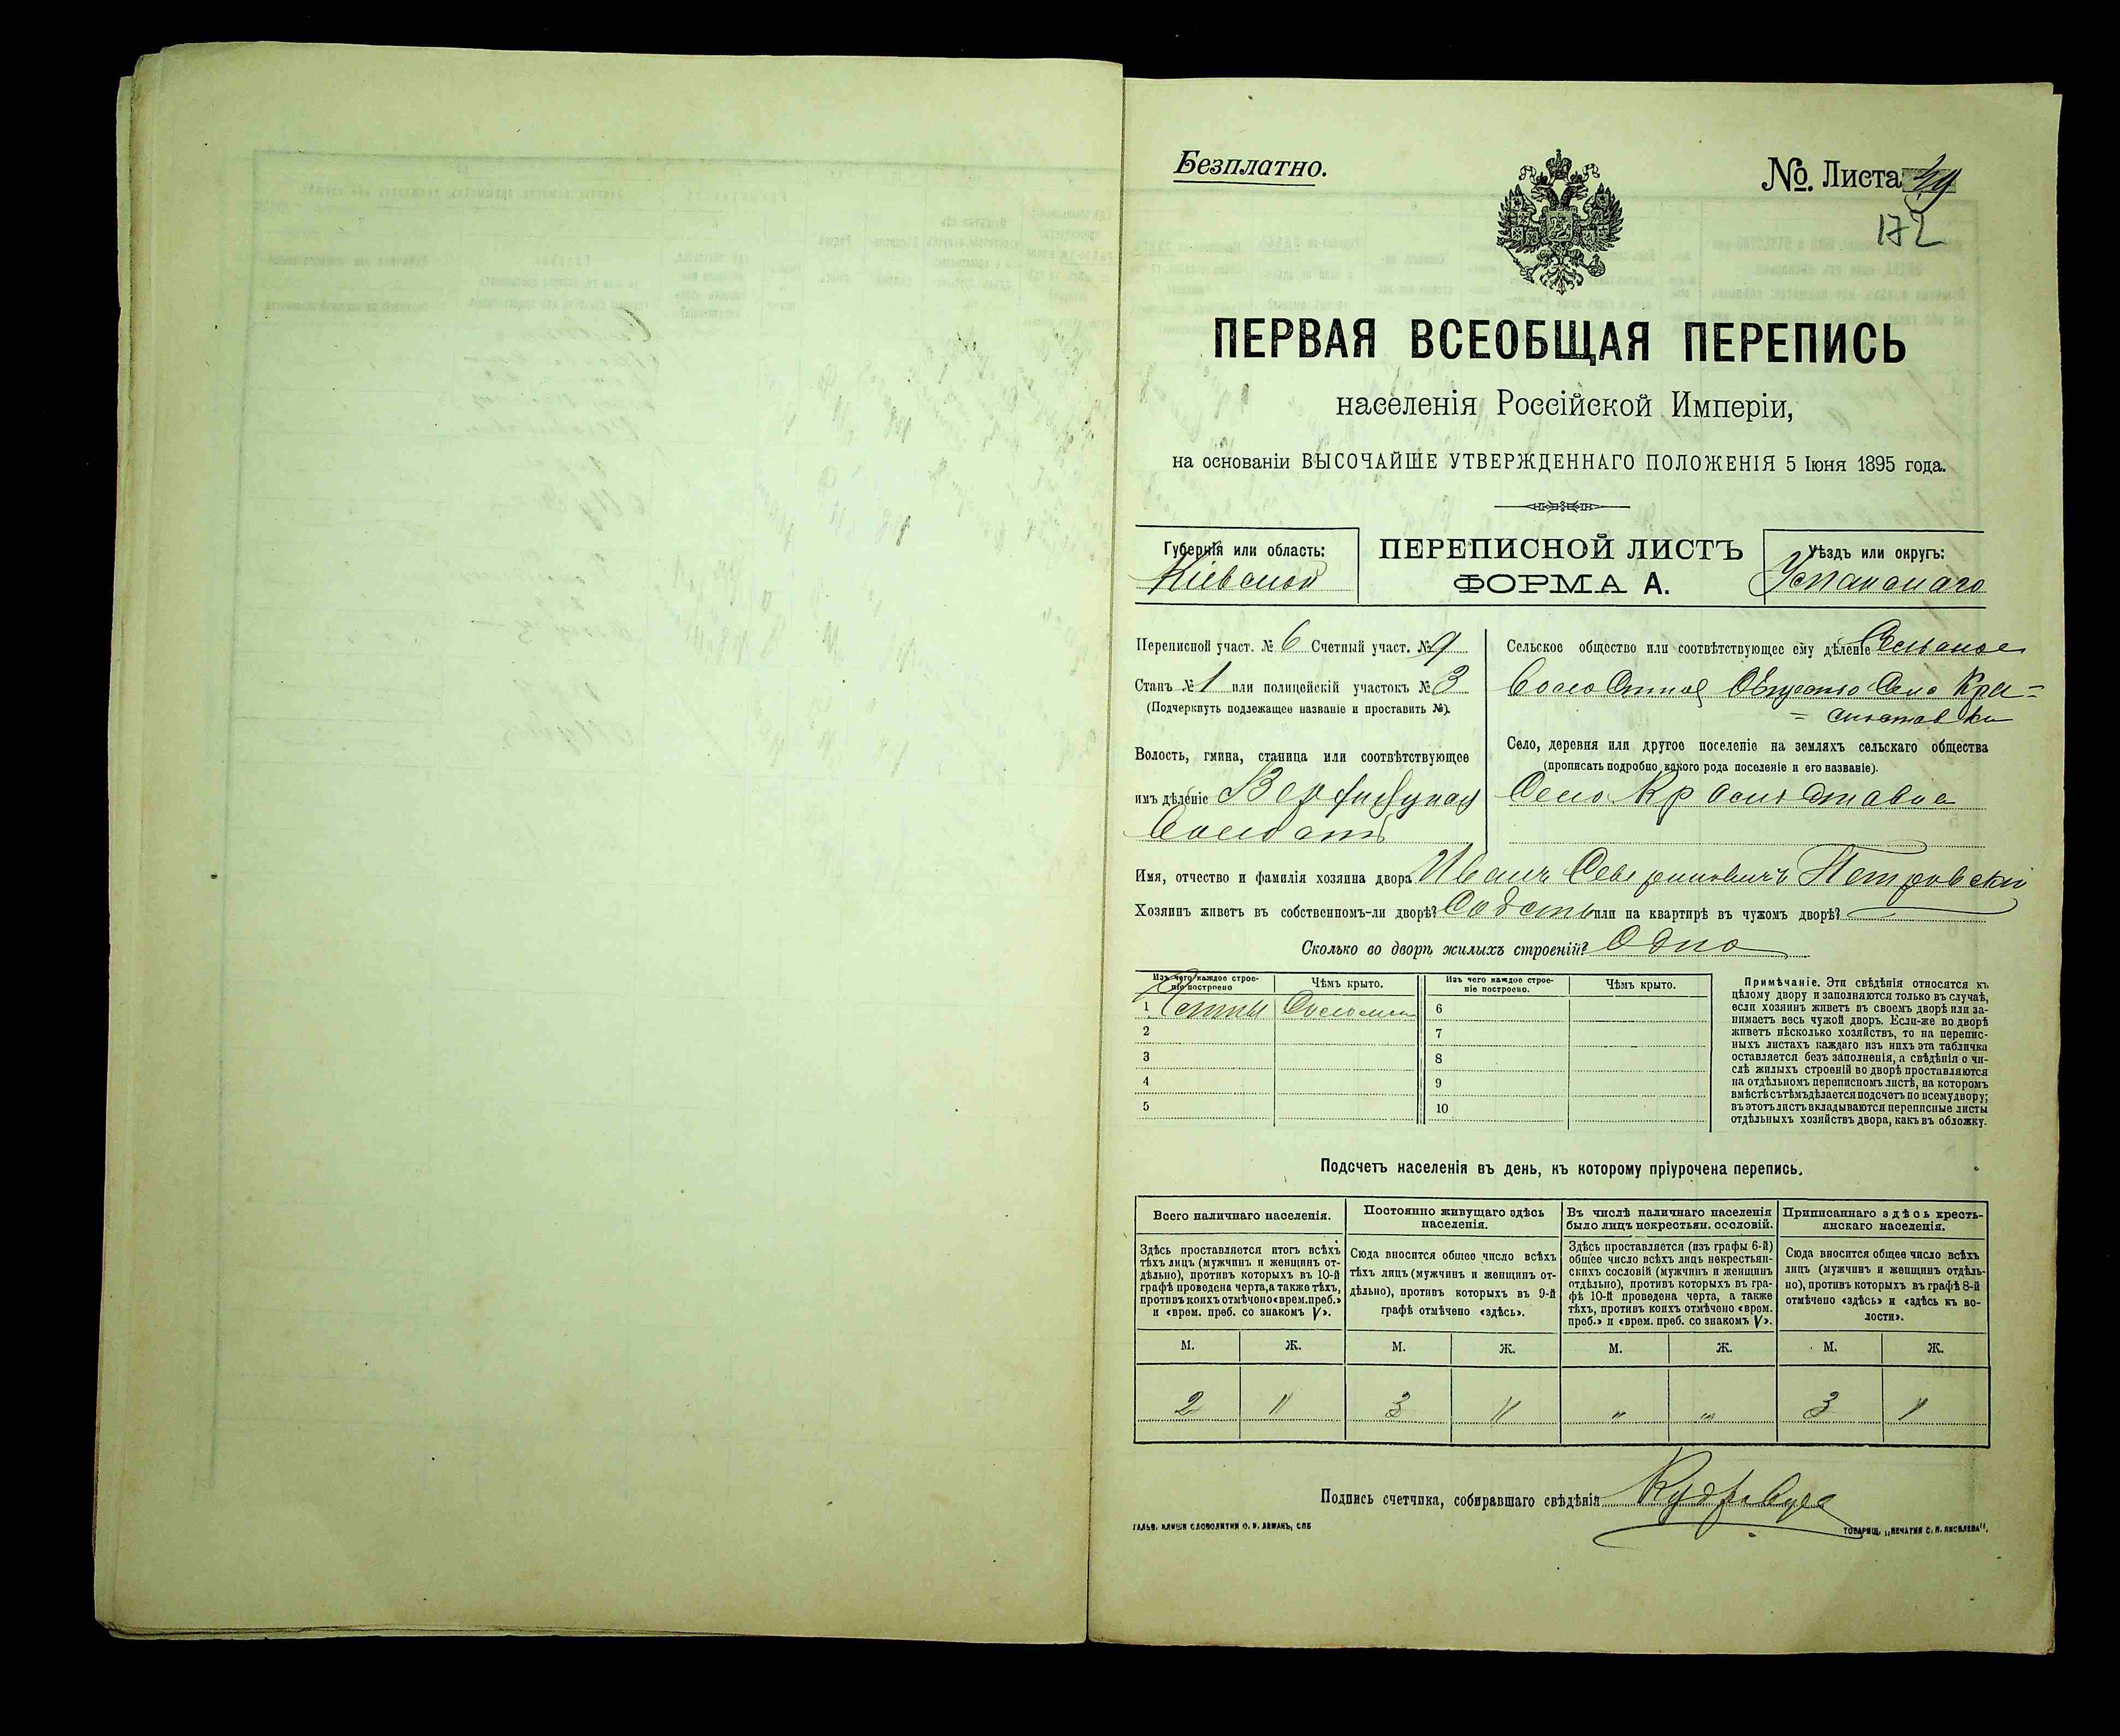 Безплатно.
№. Листа 49
172
ПЕРВАЯ ВСЕОБЩАЯ ПЕРЕПИСЬ
населенія Россійской Имперіи,
на основаніи ВЫСОЧАЙШЕ УТВЕРЖДЕННАГО ПОЛОЖЕНІЯ 5 Іюня 1895 года.
Губернія или область:
Кіевской
ПЕРЕПИСНОЙ ЛИСТЪ
ФОРМА А.
Уѣздъ или округъ:
Уманскаго
Переписной участ. № 6 Счетный участ. № 9
Станъ № 1 или полицейскій участокъ № 3
(Подчеркнуть подлежащее названіе и проставить №).
Волость, гмина, станица или соотвѣтствующее
имъ дѣленіе
Волость
Сельское общество или соотвѣтствующее ему дѣленіе Сельское
Общество Село Кра=
=сноставки
Село, деревня или другое поселеніе на земляхъ сельскаго общества
(прописать подробно какого рода поселеніе и его названіе).
Село Красноставка
Имя, отчество и фамилія хозяина двора Иванъ Севериновичъ Петровскій
Хозяинъ живетъ въ собственномъ-ли дворѣ? или на квартирѣ въ чужомъ дворѣ?
Сколько во дворѣ жилыхъ строеній? Одно
Изъ чего каждое строе-
ніе построено
Чѣмъ крыто.
Изъ чего каждое строе-
ніе построено.
Чѣмъ крыто.
1 Соломы
2
3
4
5
6
7
8
9
10
Примѣчаніе. Эти свѣдѣнія относятся къ
цѣлому двору и заполняются только въ случаѣ,
если хозяинъ живетъ въ своемъ дворѣ или за-
нимаетъ весь чужой дворъ. Если-же во дворѣ
живетъ нѣсколько хозяйствъ, то на перепис-
ныхъ листахъ каждаго изъ нихъ эта табличка
оставляется безъ заполненія, а свѣдѣнія о чи-
слѣ жилыхъ строеній во дворѣ проставляются
на отдѣльномъ переписномъ листѣ, на которомъ
вмѣстѣ съ тѣмъ дѣлается подсчетъ по всему двору;
въ этотъ листъ вкладываются переписные листы
отдѣльныхъ хозяйствъ двора, какъ въ обложку.
Подсчетъ населенія въ день, къ которому пріурочена перепись.
Всего наличнаго населенія.
Здѣсь проставляется итогъ всѣхъ
тѣхъ лицъ (мужчинъ и женщинъ от-
дѣльно), противъ которыхъ въ 10-й
графѣ проведена черта, а также тѣхъ,
противъ коихъ отмѣчено «врем. преб.»
и «врем. преб. со знакомъ V».
Постоянно живущаго здѣсь
населенія.
Сюда вносится общее число всѣхъ
тѣхъ лицъ (мужчинъ и женщинъ от-
дѣльно), противъ которыхъ въ 9-й
графѣ отмѣчено «здѣсь».
Въ числѣ наличнаго населенія
было лицъ некрестьян. сословій.
Здѣсь проставляется (изъ графы 6-й)
общее число всѣхъ лицъ некрестьян-
скихъ сословій (мужчинъ и женщинъ
отдѣльно), противъ которыхъ въ гра-
фѣ 10-й проведена черта, а также
тѣхъ, противъ коихъ отмѣчено «врем.
преб.» и «врем. преб. со знакомъ V».
Приписаннаго здѣсь кресть-
янскаго населенія.
Сюда вносится общее число всѣхъ
лицъ (мужчинъ и женщинъ отдѣль-
но), противъ которыхъ въ графѣ 8-й
отмѣчено «здѣсь» и «здѣсь къ во-
лости».
М. Ж. М. Ж. М. Ж. М. Ж.
2 " 3 " " " 3 "
Подпись счетчика, собиравшаго свѣдѣнія
ГАЛЬВ. КЛИШЕ СЛОВОЛИТНИ О. И. ЛЕМАНЪ, СПБ
ТОВАРИЩ. „ПЕЧАТНЯ С. П. ЯКОВЛЕВА".